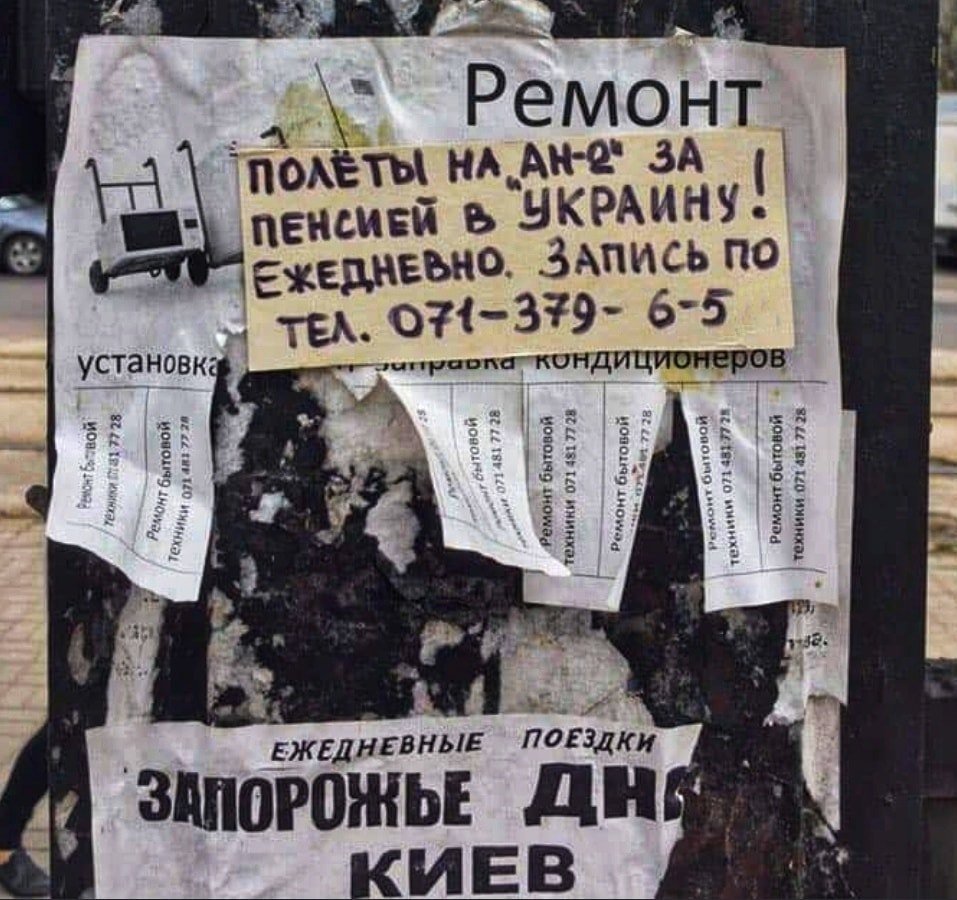 Ремонт
ПОЛЁТЫ НА „АН-2" ЗА
ПЕНСИЕЙ В "УКРАИНУ!
ЕЖЕДНЕВНО. ЗАПИСЬ ПО
ТЕЛ. 071-379- 6-5
установка
заправка кондиционеров
Ремонт бытовой
техники 071 481 77 28
Ремонт бытовой
техники 071 481 77 28
Ремонт бытовой
техники 071 481 77 28
Ремонт бытовой
техники 071 481 77 28
Ремонт бытовой
071 481 77 28
Ремонт бытовой
техники 071 481 77 28
Ремонт бытовой
техники 071 481 77 28
ЕЖЕДНЕВНЫЕ ПОЕЗДКИ
ЗАПОРОЖЬЕ ДН
КИЕВ